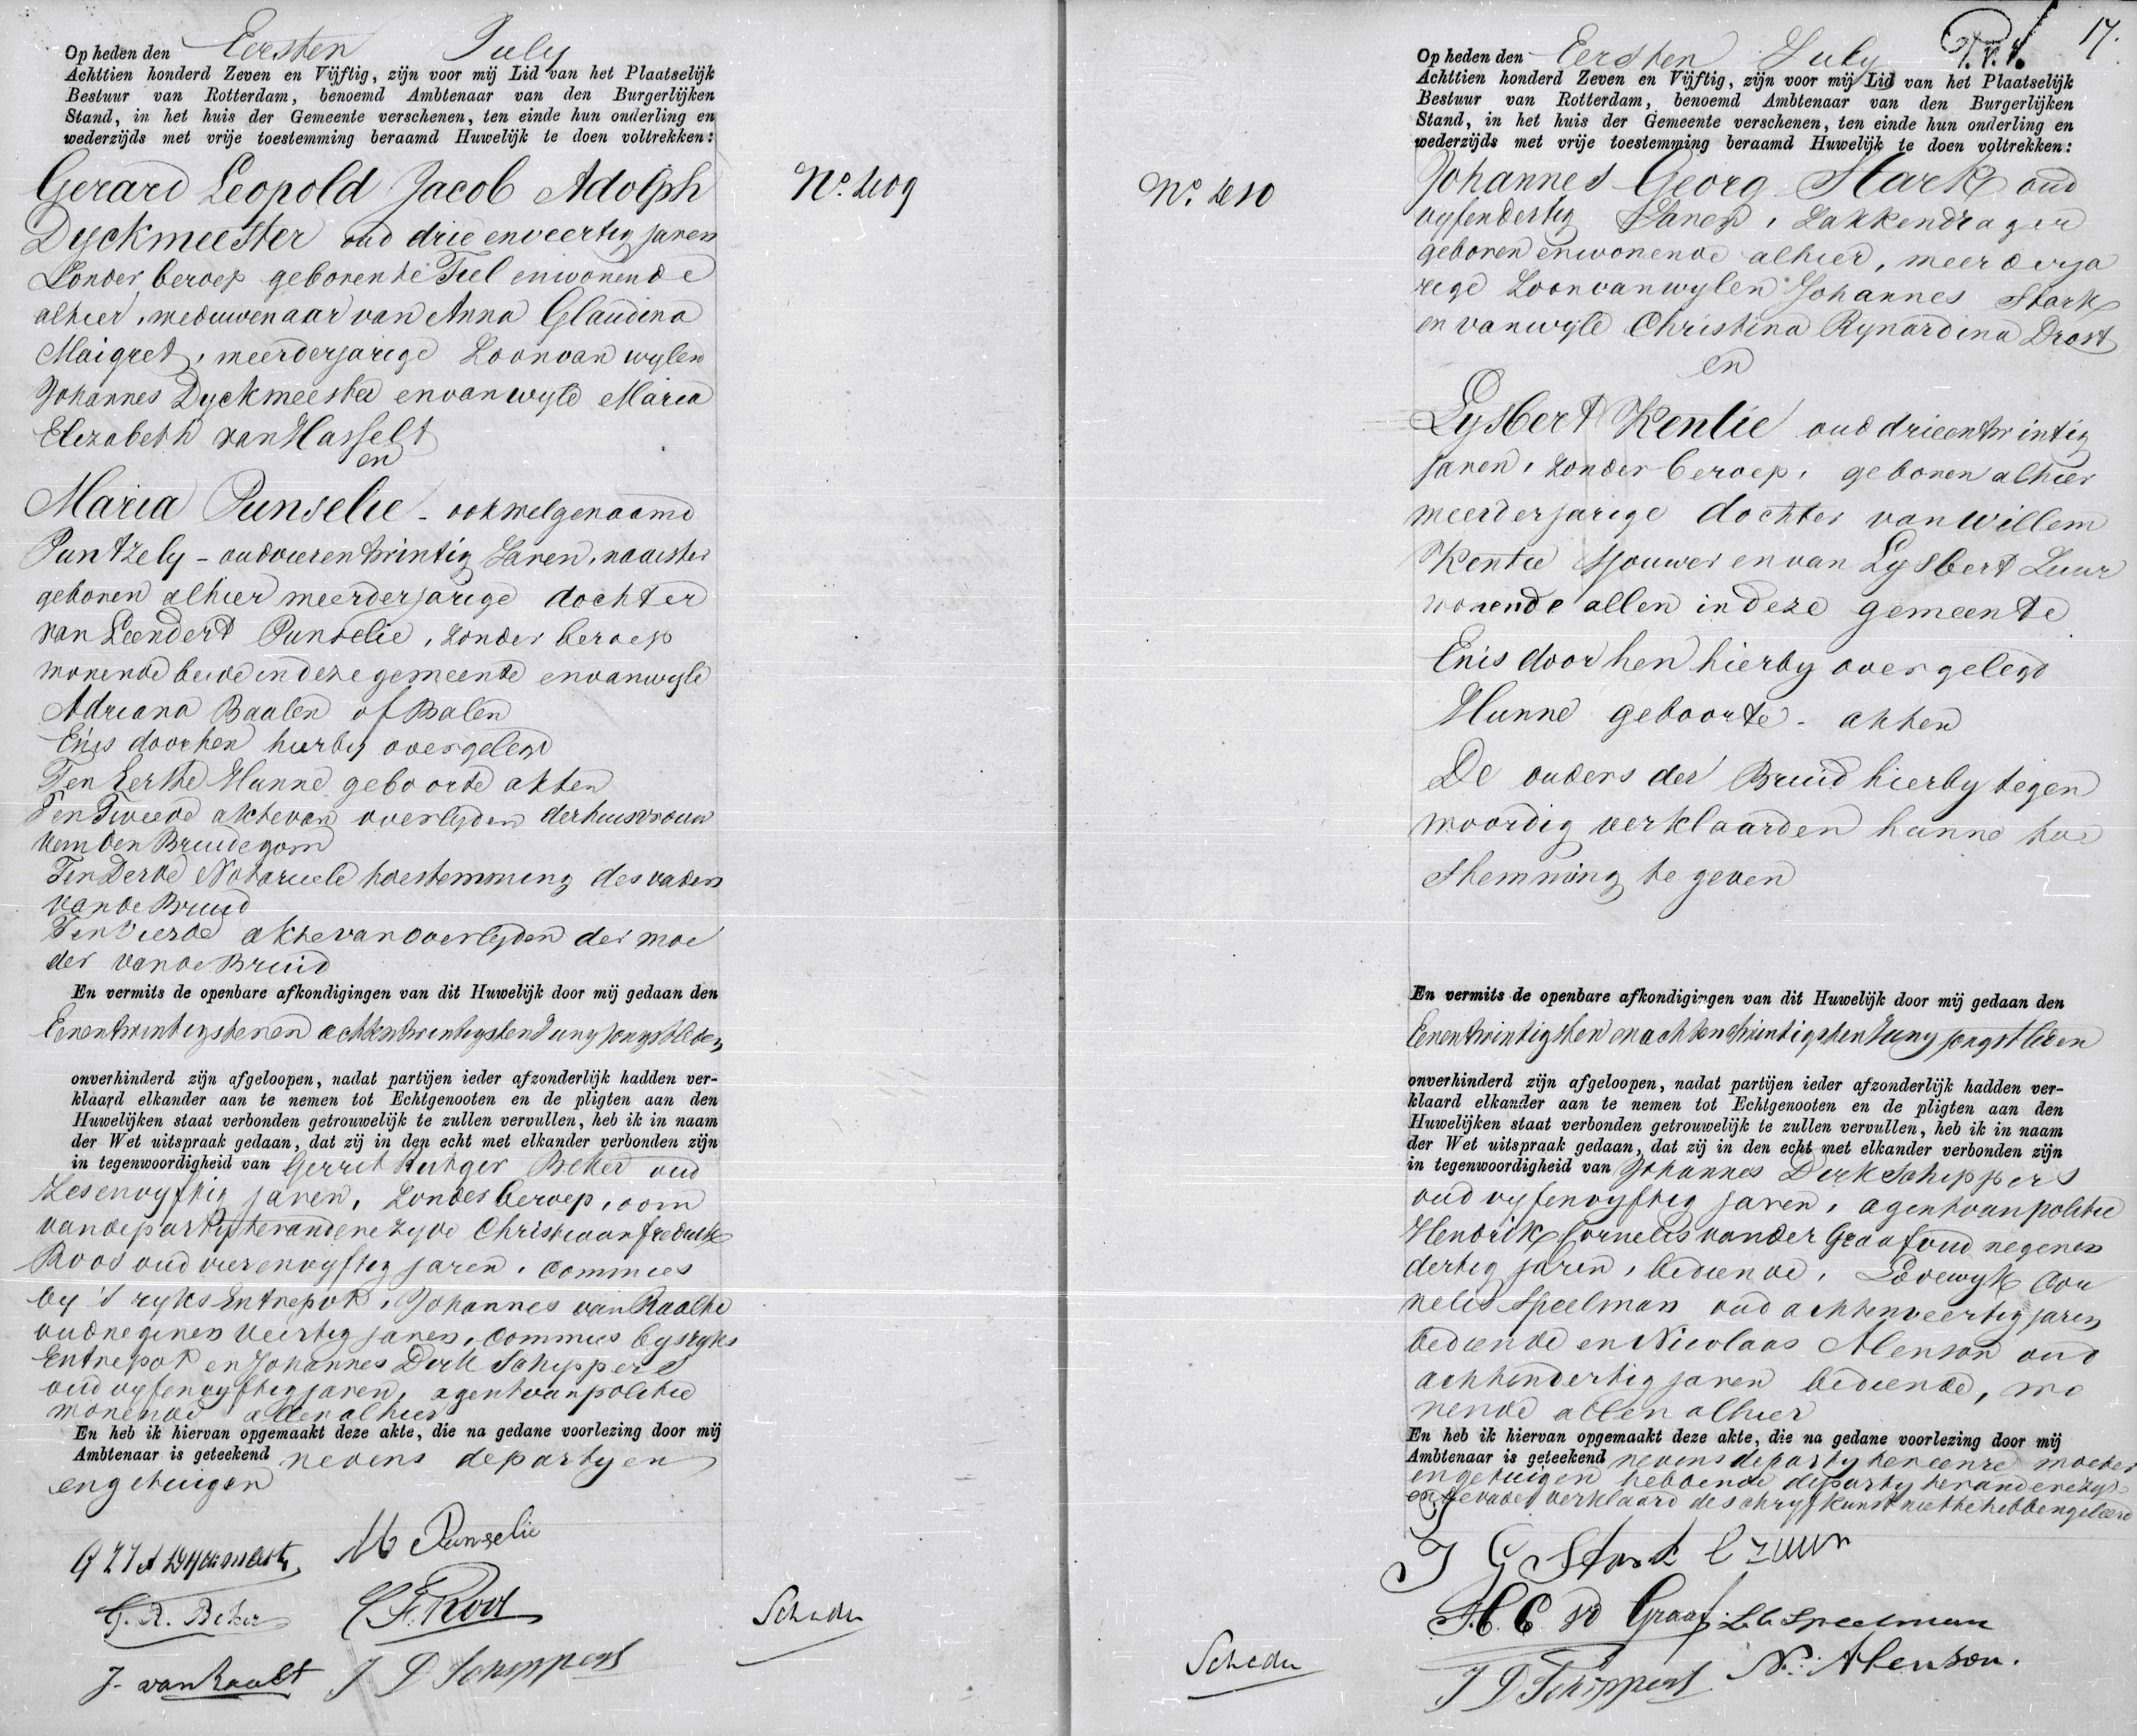 Op heden den Eersten July
Achttien honderd Zeven en Vijftig, zijn voor mij Lid van het Plaatselijk
Bestuur van Rotterdam, benoemd Ambtenaar van den Burgerlijken
Stand, in het huis der Gemeente verschenen, ten einde hun onderling en
wederzijds met vrije toestemming beraamd Huwelijk te doen voltrekken:
Gerard Leopold Jacob Adolph
Dyckmeester oud drie enveertig jaren
Zonder beroep geboren te Tiel enwonende
alhier, weduwenaar van Anna Glaudina
Maigret, meerderjarige Zoon van wylen
Johannes Dyckmeester en van wyle Maria
Elizabeth van Hasselt
en
Maria Punselie - ook wel genaamd
Puntzely - oud vier en twintig Jaren, naaister
geboren alhier meerderjarige dochter
van Leendert Punselie, zonder beroep
wonende beide in deze gemeente en van wyle
Adriana Baalen of Balen
En is door hen hierby overgelegd
Ten Eerste Hunne geboorte akten
Ten Tweede akte van overlyden der huisvrouw
van den Bruidegom
Ten Derde Notariele toestemming des vaders
van de Bruid
Ten Vierde akte van overlyden der moe
der van de Bruid
En vermits de openbare afkondigingen van dit Huwelijk door mij gedaan den
Eenentwintigsten en achtentwintigsten Juny jongstleden
onverhinderd zijn afgeloopen, nadat partijen ieder afzonderlijk hadden ver-
klaard elkander aan te nemen tot Echtgenooten en de pligten aan den
Huwelijken staat verbonden getrouwelijk te zullen vervullen, heb ik in naam
der Wet uitspraak gedaan, dat zij in den echt met elkander verbonden zijn
in tegenwoordigheid van Gerrit Rutger Beker oud
Zesenvyftig jaren, Zonder beroep, oom
van de party ter andere zyde Christiaan Fredrik
Roos oud vierenvyftig jaren, Commies
by 's ryks Entrepot, Johannes van Raalte
oud negenen veertig jaren, Commies by s ryks
Entrepot en Johannes Dirk Schippers
oud vyfenvyftig jaren, agent van politie
wonende allen alhier
En heb ik hiervan opgemaakt deze akte, die na gedane voorlezing door mij
Ambtenaar is geteekend nevens de partyen
en getuigen
G L J A Dyckmeester M Punselie
G. R. Beker C. F. Roos
J. van Raalt J D Schippers
No. 409
Schadee
17.
No. 410
Op heden den Eersten July
Achttien honderd Zeven en Vijftig, zijn voor mij Lid van het Plaatselijk
Bestuur van Rotterdam, benoemd Ambtenaar van den Burgerlijken
Stand, in het huis der Gemeente verschenen, ten einde hun onderling en
wederzijds met vrije toestemming beraamd Huwelijk te doen voltrekken:
Johannes Georg Stark oud
vyfendertig Jaren, Zakkendrager
geboren en wonende alhier, meerderja
rige Zoon van wylen Johannes Stark
en van wyle Christina Rynardina Drost
en
Lysbert Kentie oud drieentwintig
jaren, zonder beroep, geboren alhier
meerderjarige dochter van Willem
Kentie Sjouwer en van Lysbert Zuur
wonende allen in deze gemeente
En is door hen hierby overgelegd
Hunne geboorte-akten
De ouders der Bruid hierby tegen
woordig verklaarden hunne toe
stemming te geven
En vermits de openbare afkondigingen van dit Huwelijk door mij gedaan den
Eenentwintigsten en achtentwintigsten Juny jongstleden
onverhinderd zijn afgeloopen, nadat partijen ieder afzonderlijk hadden ver-
klaard elkander aan te nemen tot Echtgenooten en de pligten aan den
Huwelijken staat verbonden getrouwelijk te zullen vervullen, heb ik in naam
der Wet uitspraak gedaan, dat zij in den echt met elkander verbonden zijn
in tegenwoordigheid van Johannes Dirk Schippers
oud vyfenvyftig jaren, agent van politie
Hendrik Cornelis van der Graaf oud negenen
dertig jaren, bediende, Lodewyk Cor
nelis Speelman oud achtenveertig jaren
bediende en Nicolaas Alenson oud
achtendertig jaren bediende, wo
nende allen alhier
En heb ik hiervan opgemaakt deze akte, die na gedane voorlezing door mij
Ambtenaar is geteekend nevens de party ter eenre moeder
en getuigen hebbende de party ter andere zyde
en de vader verklaard de schryfkunst niet te hebben geleerd
J G Stark L zuur
H. C. vd Graaf L C Speelman
J D Schippers N. Alenson.
Schadee